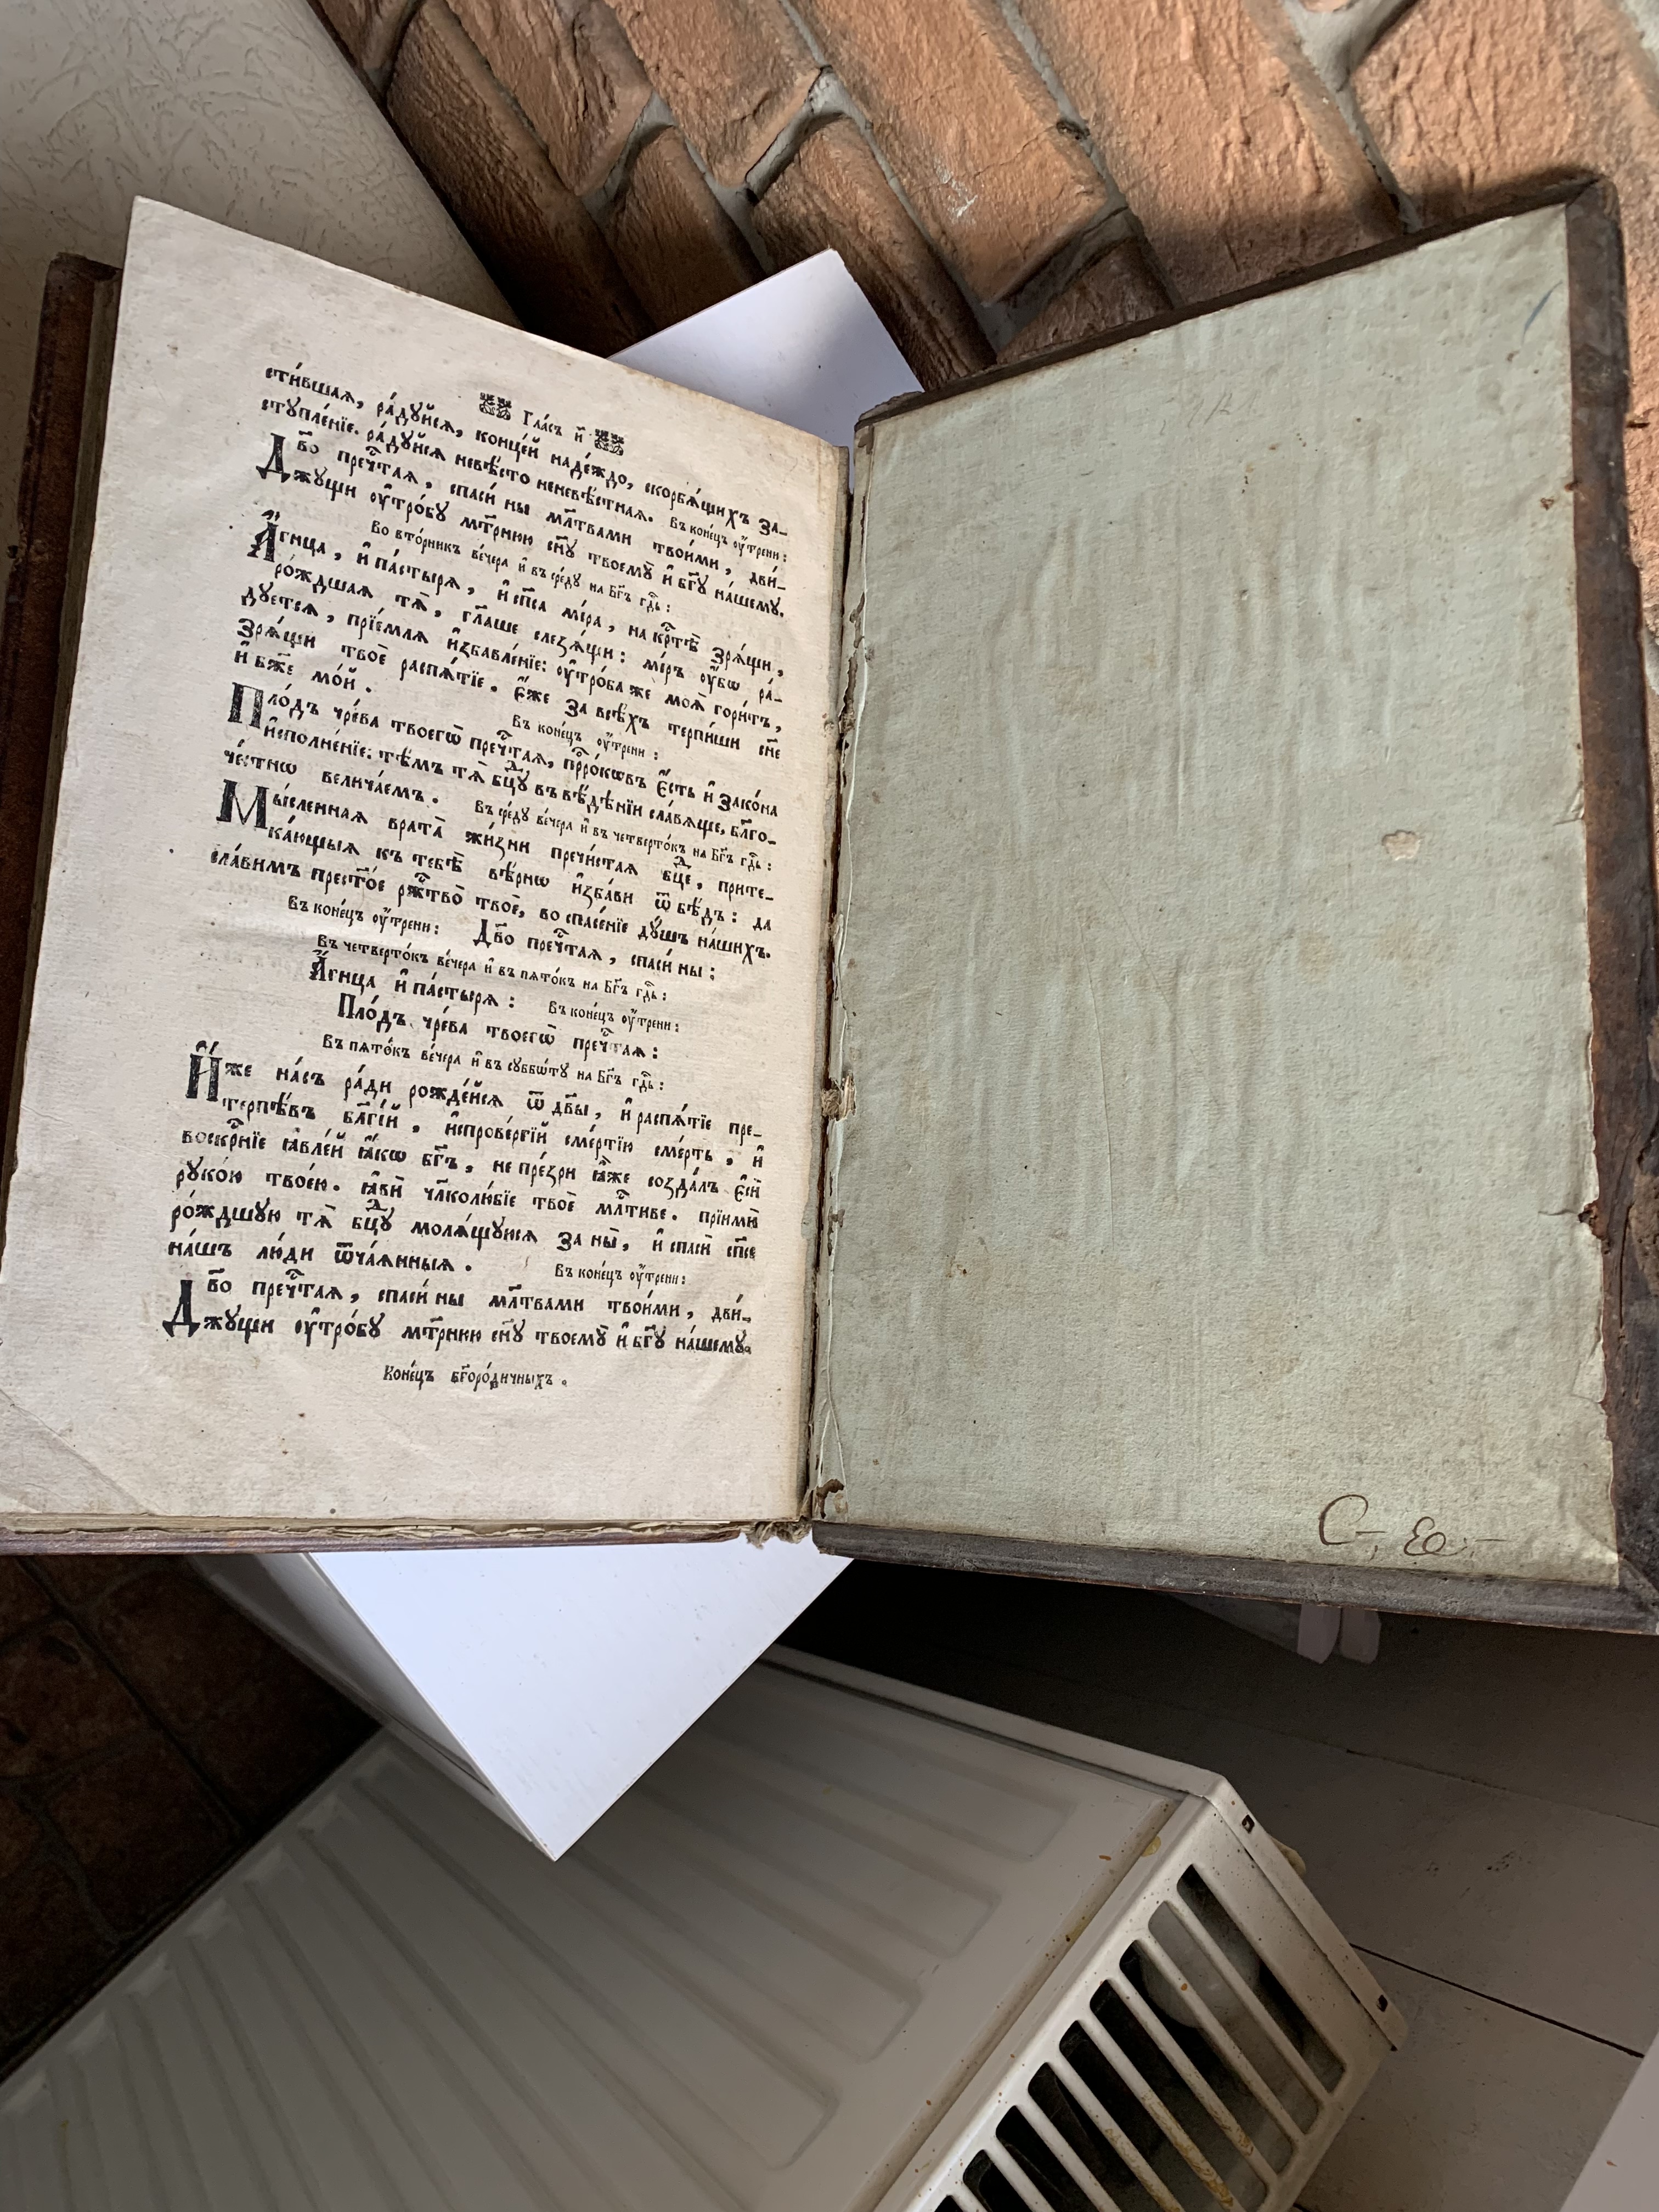 Гла́съ и҃
сти́вшаѧ, ра́дꙋйсѧ, конце́й наде́ждо, скорбѧ́щихъ за_
стꙋпле́нїе. ра́дꙋйсѧ невѣ́сто неневѣ́стнаѧ. Въ коне́цъ оу҆́трени:
Дв҃о преч\ⷭ҇таѧ, спаси́ ны мл҃твами твои́ми, дви́_
жꙋщи оу҆тро́бꙋ мт҃рнюю сн҃ꙋ твоемꙋ̀ и҆ бг҃ꙋ на́шемꙋ.
Во вто́рникъ ве́чера и҆ въ сре́дꙋ на Бг҃ъ гдⷭ҇ь:
А҆́гница, и҆ па́стырѧ, и҆ сп҃са мі́ра, на крⷭ҇тѣ̀ зрѧ́щи,
ро́ждшаѧ тѧ̀, гл҃аше слезѧ́щи: мі́ръ оу҆́бѡ ра́_
дꙋетсѧ, прїе́млѧ и҆збавле́нїе: оу҆тро́ба же моѧ̀ гори́тъ,
зрѧ́щи твоѐ распѧ́тїе. є҆́же за всѣ́хъ терпи́ши сн҃е
и҆ бж҃е мо́й.
Въ коне́цъ оу҆́трени:
Пло́дъ чре́ва твоегѡ̀ преч\ⷭ҇таѧ, прⷪ҇ро́кѡвъ є҆́сть и҆ зако́на
и҆сполне́нїе: тѣ́мъ тѧ̀ бцⷣꙋ въ вѣ́дѣнїи сла́вѧще, бл҃го_
че́стнѡ велича́емъ. Въ сре́дꙋ ве́чера и҆ въ четверто́къ на Бг҃ъ гдⷭ҇ь:
Мы́сленнаѧ врата̀ жи́зни пречи́стаѧ бцⷣе, прите_
ка́ющыѧ къ тебѣ̀ вѣ́рнѡ и҆зба́ви ѿ бѣ́дъ: да
сла́вимъ прест҃о́е ржⷭ҇тво̀ твоѐ, во спасе́нїе дꙋ́шъ на́шихъ.
Въ коне́цъ оу҆́трени: Дв҃о преч\ⷭ҇таѧ, спаси́ ны:
Въ четверто́къ ве́чера и҆ въ пѧто́къ на Бг҃ъ гдⷭ҇ь:
А҆́гница и҆ па́стырѧ: Въ коне́цъ оу҆́трени:
Пло́дъ чре́ва твоегѡ̀ преч\ⷭ҇таѧ:
Въ пѧто́къ ве́чера и҆ въ сꙋббѡ́тꙋ на Бг҃ъ гдⷭ҇ь:
И҆́же на́съ ра́ди рожде́йсѧ ѿ дв҃ы, и҆ распѧ́тїе пре_
терпѣ́въ бл҃гі́й, и҆спрове́ргїй сме́ртїю сме́рть, и҆
воскрⷭ҇нїе ꙗ҆вле́й ꙗ҆́кѡ бг҃ъ, не пре́зри ꙗ҆̀же созда́лъ є҆сѝ
рꙋко́ю твое́ю. ꙗ҆вѝ чл҃колю́бїе твоѐ мл҃тиве. прїимѝ
ро́ждшꙋю тѧ̀ бцⷣꙋ молѧ́щꙋюсѧ за ны̀, и҆ спасѝ сп҃се
на́шъ лю́ди ѿча́ѧнныѧ. Въ коне́цъ оу҆́трени:
Дв҃о преч\ⷭ҇таѧ, спаси́ ны мл҃твами твои́ми, дви́_
жꙋщи оу҆тро́бꙋ мт҃рнюю сн҃ꙋ твоемꙋ̀ и҆ бг҃ꙋ на́шемꙋ.
Коне́цъ бг҃оро́дичныхъ.